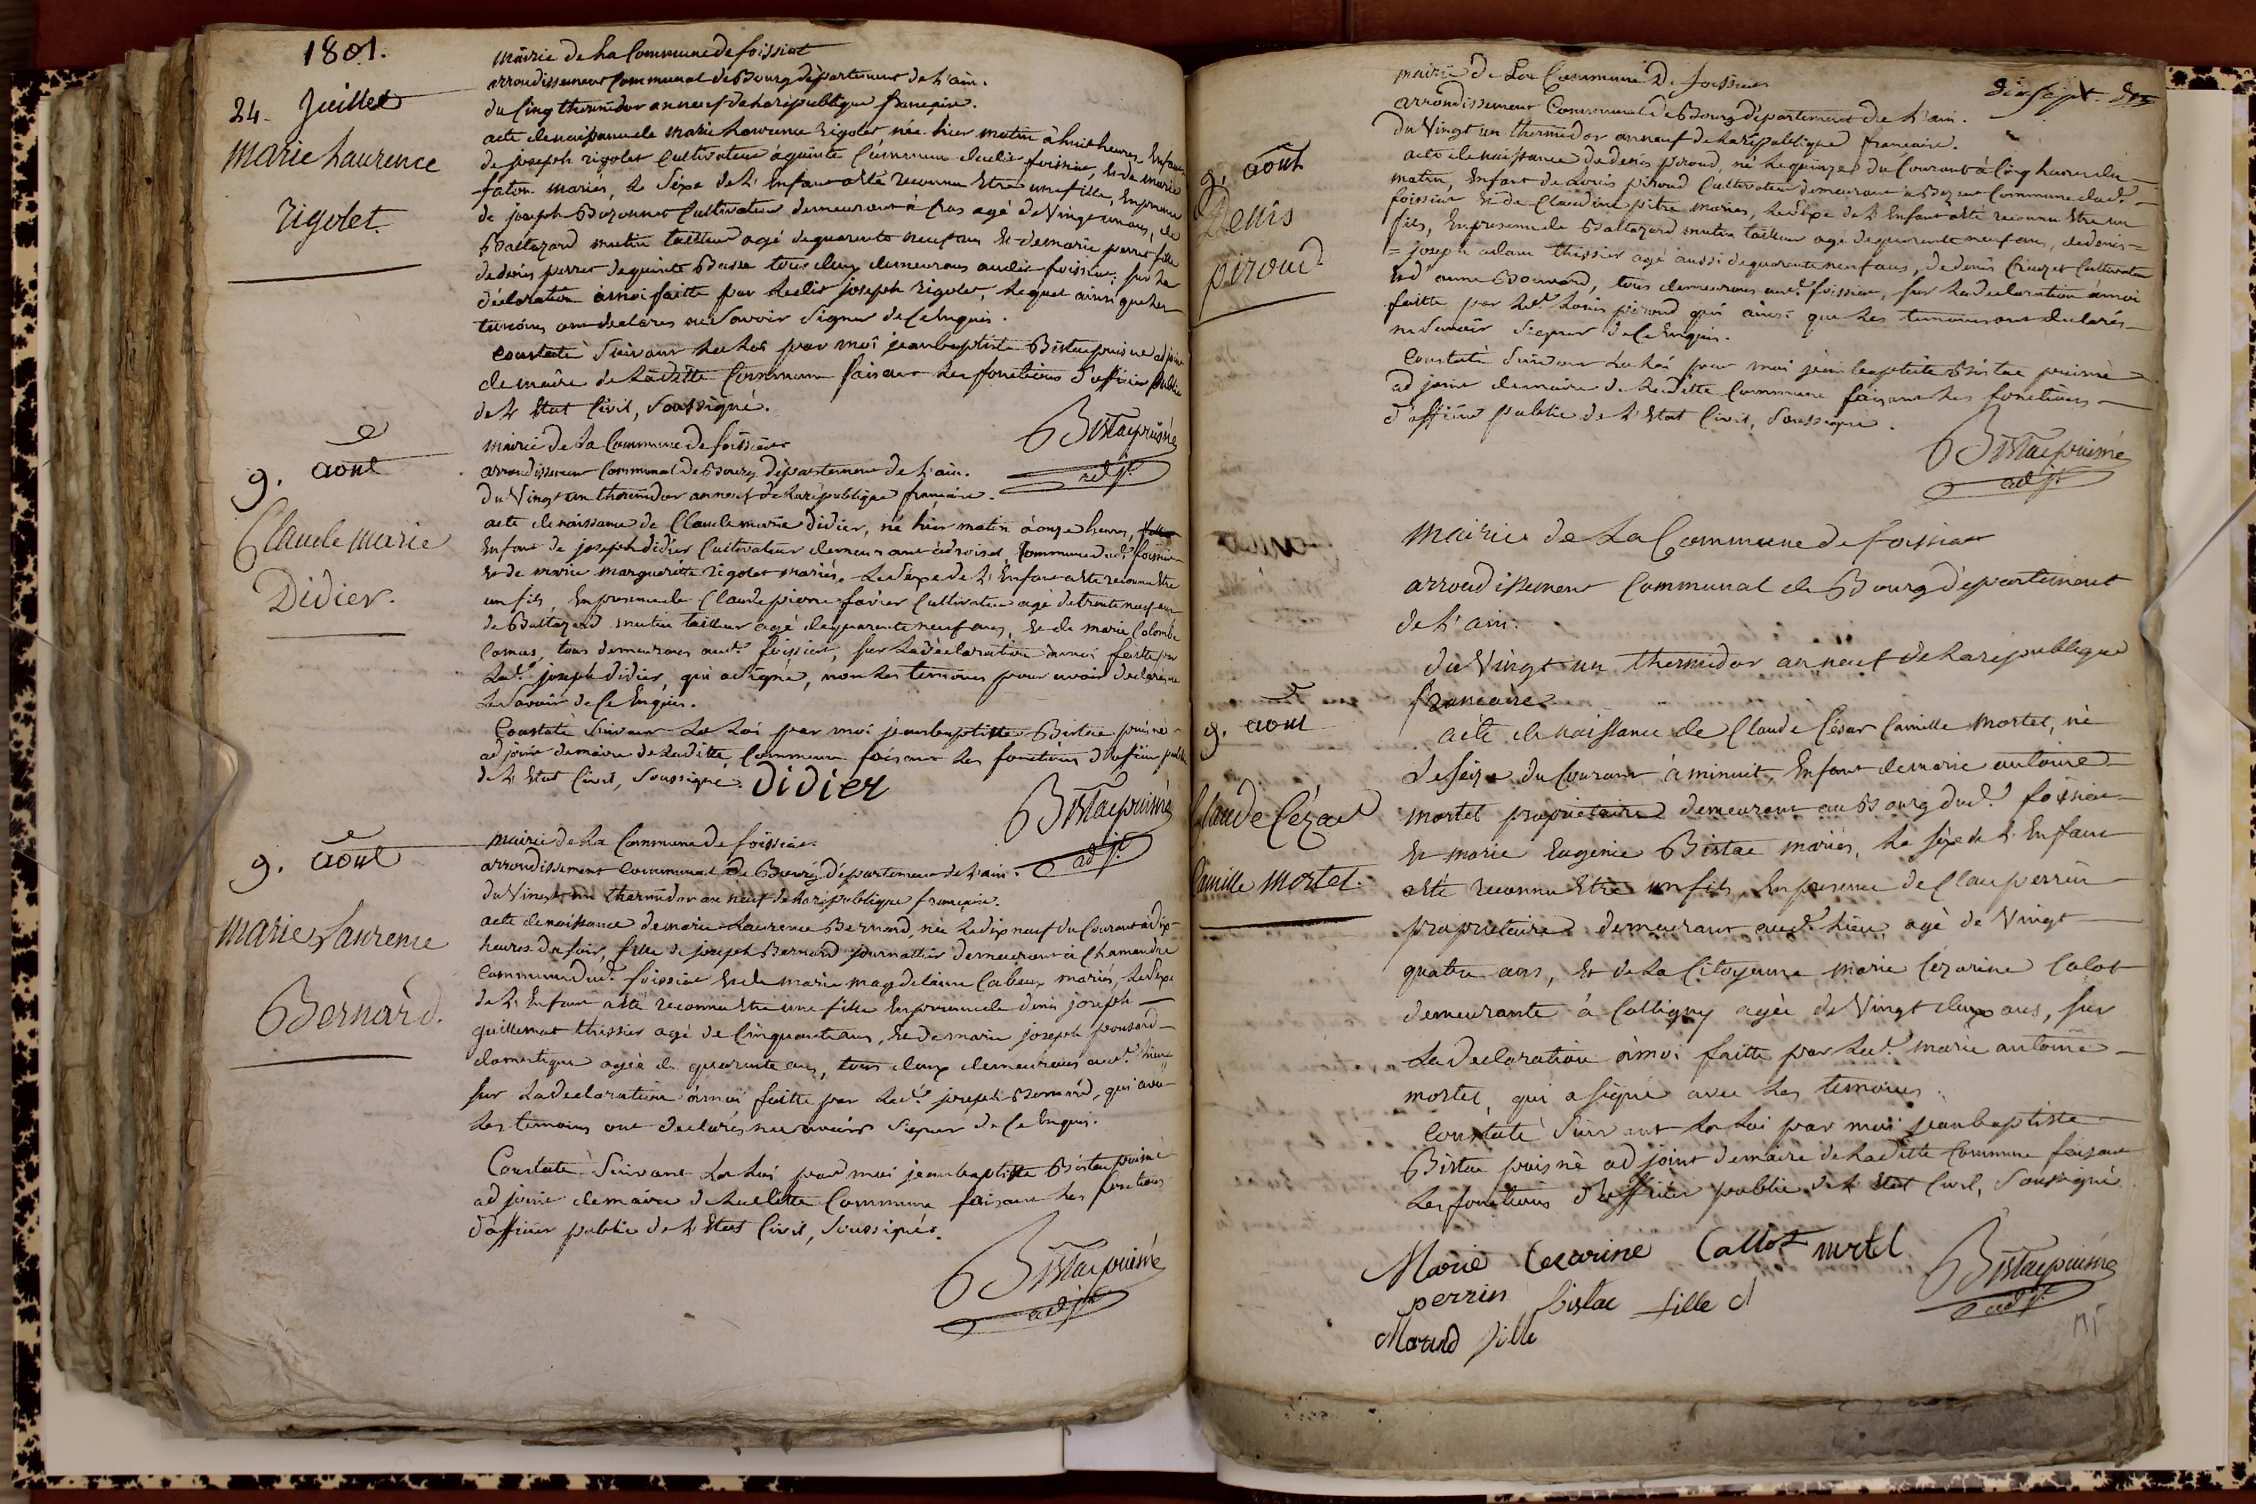 1801.
24. Juillet
Marie Laurence
Rigolet.
mairie de La Commune de foissiat
arrondissement Communal de Bourg département de L'ain.
du Cinq thermidor an neuf de La république française.
acte de naissance de marie Laurence rigolet née hier matin à huit heures, Enfant
de joseph rigolet Cultivateur à quinte Commune dudit foissiat, et de marie
faton mariés, Le Sexe de L'Enfant a été reconnu Etre une fille, En presence
de joseph Bozonnet Cultivateur demeurant à Cras agé de Vingt un ans, de
Baltazard mutin tailleur agé de quarante neuf ans Et de marie perret fille
de denis perret de quinte Basse tous deux demeurans audit foissiat; sur La
déclaration à moi faitte par Ledit joseph rigolet, Lequel ainsi que Les
temoins ont declarés ne Savoir Signer de Ce Enquis.
Constaté Suivant La Loi par moi jean baptiste Bistac puisné adjoint
de maire de La ditte Commune faisant Les fonctions d'officier public
de L'Etat Civil, Soussigné.
Bistac puisné
adjt.
9. aout
Claude Marie
Didier.
mairie de La Commune de foissiat
arrondissement Communal de Bourg département de L'ain.
du Vingt un thermidor an neuf de La république française.
acte de naissance de Claude marie didier, né hier matin à onze heures,
Enfant de joseph didier Cultivateur demeurant à Commune dud. foissiat
et de marie marguerite rigolet mariés. Le Sexe de L'Enfant a été reconnu Etre
un fils, En presence de Claude pierre favier Cultivateur agé de trente neuf ans
de Baltazard mutin tailleur agé de quarante neuf ans, et de marie Colombe
Comas, tous demeurans aud. foissiat, sur La déclaration à moi faitte par
Led. joseph didier, qui a Signé, non Les temoins pour avoir declarés ne
Le Savoir de Ce Enquis.
Constaté Suivant La Loi par moi jean baptiste Bistac puisné
adjoint de maire de La ditte Commune faisant Les fonctions d'officier public
de L'Etat Civil, Soussigné. Didier
Bistac puisné
adjt.
9. aout
Marie Laurence
Bernard.
mairie de La Commune de foissiat.
arrondissement Communal de Bourg département de L'ain.
du Vingt un thermidor an neuf de La république française.
acte de naissance de marie Laurence Bernard, née Le dix neuf du Courant à dix
heures du soir, fille de joseph Bernard journallier demeurant à Chamandré
Commune dud. foissiat et de marie magdelaine mariés, Le Sexe
de L'Enfant a été reconnu Etre une fille En presence de denis joseph
guillemot thissier agé de Cinquante ans, et de marie joseph ponsard
domestique agée de quarante ans, tous deux demeurans aud. Lieu
sur La declaration à moi faitte par Led. joseph Bernard, qui avec
Les temoins ont declarés ne savoir Signer de Ce Enquis.
Constaté Suivant La Loi par moi jean baptiste Bistac puisné
adjoint de maire de La ditte Commune faisant Les fonctions
d'officier public de L'Etat Civil, Soussigné.
Bistac puisné
adjt.
dix sept.
9. août
Denis
piroud
mairie de La Commune de foissiat
arrondissement Communal de Bourg département de L'ain.
du Vingt un thermidor an neuf de La république française.
acte de naissance de denis piroud, né Le quinze du Courant à Cinq heures du
matin, Enfant de Louis piroud Cultivateur demeurant à Commune dud.
foissiat et de Claudine pitre mariés, Le Sexe de L'Enfant a été reconnu Etre un
fils, En presence de Baltazard mutin tailleur agé de quarante neuf ans, de denis
joseph adam thissier agé aussi de quarante neuf ans, de denis Cultivateur
et d'anne tous demeurans aud. foissiat, sur La declaration à moi
faitte par Led. Louis piroud qui ainsi que Les temoins ont declarés
ne Savoir Signer de Ce Enquis.
Constaté Suivant La Loi par moi jean baptiste Bistac puisné
adjoint de maire de La ditte Commune faisant Les fonctions
d'officier public de L'Etat Civil, Soussigné.
Bistac puisné
adjt.
9. aout
Claude Cézar
Camille Mortel.
mairie de La Commune de foissiat
arrondissement Communal de Bourg département
de L'ain.
du Vingt un thermidor an neuf de La république
française
acte de naissance de Claude César Camille mortel, né
Le seize du Courant à minuit, Enfant de marie antoine
mortel propriétaire demeurant au Bourg dud. foissiat
et marie Eugenie Bistac mariés, Le sexe de L'Enfant
a été reconnu Etre un fils, En presence de Clau perrin
propriétaire demeurant aud. Lieu agé de Vingt
quatre ans, et de La Citoyenne marie Cezarine Calot
demeurante à Colligny agée de Vingt deux ans, sur
La declaration à moi faitte par Led. marie antoine
mortel, qui a signé avec Les temoins.
Constaté Suivant La Loi par moi jean baptiste
Bistac puisné adjoint de maire de La ditte Commune faisant
Les fonctions d'officier public de L'Etat Civil, Soussigné
Marie Cezarine Callot mortel
perrin Bistac fille
Morand fille
Bistac puisné
adjt.